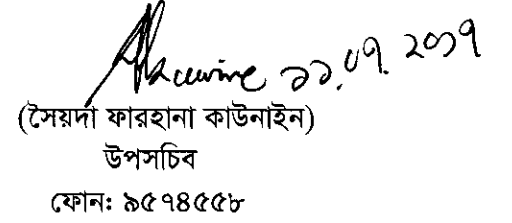 ১১.০৭.২০১৭
(সৈয়দা ফারহানা কাউনাইন)
উপসচিব
ফোন: ৯৫৭৪৫৫৮